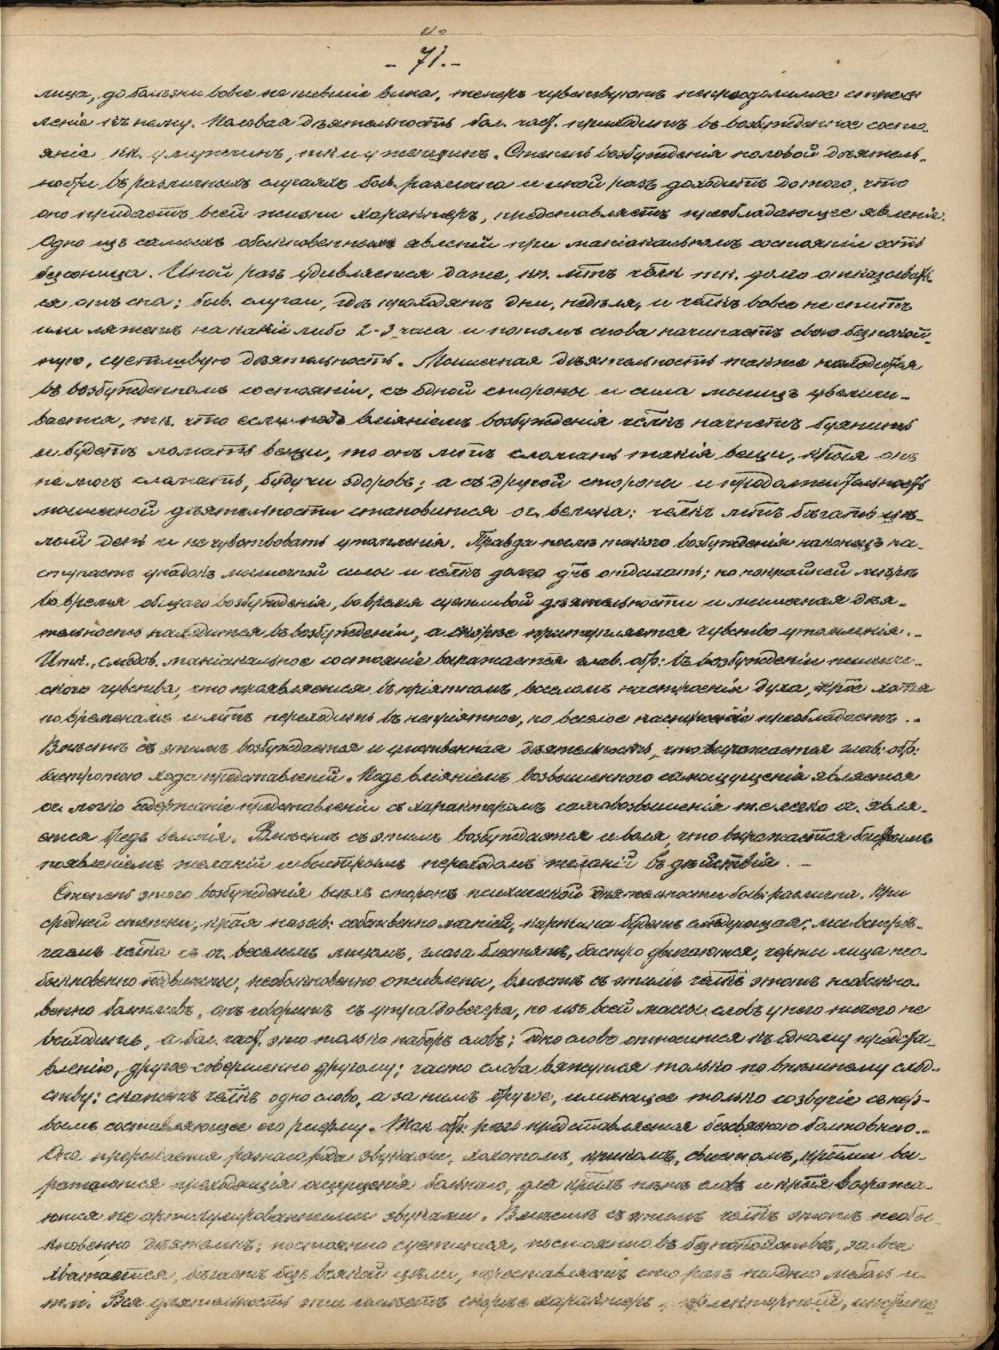 - 71. -
лица, до болѣзни вовсе не пившіе вина, теперь чувствуютъ непреодолимое стрем-
леніе къ нему. Половая дѣятельность бол. част. приходитъ въ возбужденное состо-
яніе кк. у мужчинъ, тк. и у женщинъ. Степень возбужденія половой дѣятель-
ности въ различныхъ случаяхъ быв. различна и иной разъ доходитъ до того, что
оно придаетъ всей жизни характеръ, представляетъ преобладающее явленіе.
Одно изъ самыхъ обыкновенныхъ явленій при маніакальномъ состояніи есть
безсонница. Иной разъ удивляешься даже, кк. м.тъ челкъ тк. долго отказывать-
ся отъ сна; быв. случаи, гдѣ проходятъ дни, недѣля, и челкъ вовсе не спитъ
или ляжетъ на какіе либо 2-3 часа и потомъ снова начинаетъ свою безпокой-
ную, суетливую дѣятельность. Мышечная дѣятельность также находится
въ возбужденномъ состояніи, съ одной стороны и сила мышцъ увеличи-
вается, тк. что если подъ вліяніемъ возбужденія челкъ начнетъ буянить
и будетъ ломать вещи, то онъ м.тъ сломать такія вещи, крыя онъ
не могъ сломать, будучи здоровъ; а съ другой стороны и продолжительность
мышечной дѣятельности становится оч. велика: челкъ м.тъ бѣгать цѣ-
лый день и не чувствовать утомленія. Правда послѣ такого возбужденія наконецъ на-
ступаетъ упадокъ мышечной силы и челкъ долго д.нъ отдыхать; но покрайней мѣрѣ
во время общаго возбужденія, во время суетливой дѣятельности и мышечная дѣя-
тельность находится въ возбужденіи, а скорѣе притупляется чувство утомленія. -
Итк., слѣдов. маніакальное состояніе выражается глав. обр. въ возбужденіи психиче-
скаго чувства, что проявляется въ пріятномъ, веселомъ настроеніи духа, крое хотя
по временамъ и м.тъ переходить въ непріятное, но веселое настроеніе преобладаетъ. -
Вмѣстѣ съ этимъ возбуждается и умственная дѣятельность, что выражается глав. обр.
быстротою хода представленій. Подъ вліяніемъ возвышеннаго самоощущенія является
оч. легко содержаніе представленій съ характеромъ самовозвышенія т.е. легко оч. явля-
ется бредъ величія. Вмѣстѣ съ этимъ возбуждается и воля, что выражается быстрымъ
появленіемъ желаній и быстрымъ переходомъ желаній въ дѣйствія. -
Степень этого возбужденія всѣхъ сторонъ психической дѣятельности быв. различна. При
средней степени, края назыв. собственно маніей, картина будетъ слѣдующая: мы встрѣ-
чаемъ челка съ оч. веселымъ лицомъ, глаза блестятъ, быстро двигаются, черты лица нео-
быкновенно подвижны, необыкновенно оживлены, вмѣстѣ съ этимъ челкъ этотъ необыкно-
венно болтливъ, онъ говоритъ съ утра до вечера, но изъ всей массы словъ у него ничего не
выходитъ, а бол. част. это только наборъ словъ; одно слово относится къ одному предста-
вленію, другое совершенно другому; часто слова вяжутся только по внѣшнему сход-
ству: скажетъ челкъ одно слово, а за нимъ другое, имѣющее только созвучіе съ пер-
вымъ составляющее его рифму. Так. обр. рѣчь представляется безсвязною болтовнею. -
Она прерывается разнаго рода звуками, хохотомъ, крикомъ, свистомъ, крыми вы-
ражаются преходящія ощущенія больнаго, для крыхъ нѣтъ словъ и крыя выража-
ются не артикулированными звуками. Вмѣстѣ съ этимъ челкъ этотъ необы-
кновенно дѣятеленъ: постоянно суетится, постоянно въ безпокойствѣ, за все
хватается, бѣгаетъ безъ всякой цѣли, переставляетъ сто разъ на дню мебель и
т.п. Вся дѣятельность эта имѣетъ скорѣе характеръ